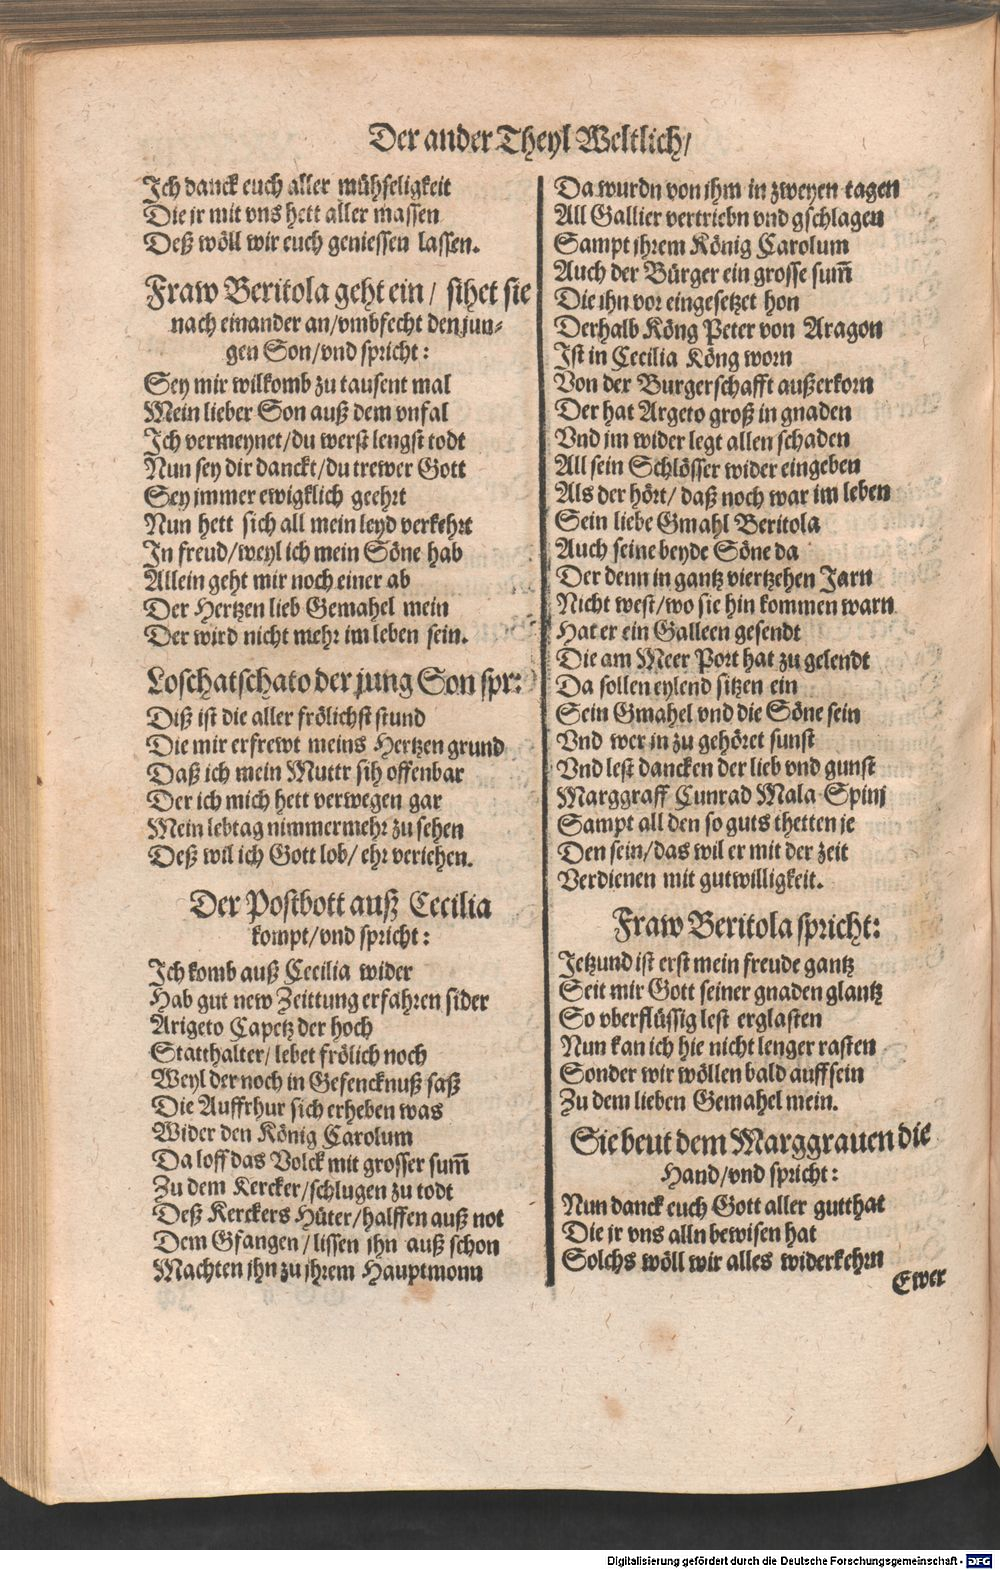 Der ander Theyl Weltlich/
Ich danck euch aller mühseligkeit
Die jr mit vns hett aller massen
Deß wöll wir euch geniessen lassen.
Fraw Beritola geht ein / sihet sie
nach einander an/vmbfecht den jun-
gen Son/vnd spricht:
Sey mir wilkomb zu tausent mal
Mein lieber Son auß dem vnfal
Ich vermeynet/du werst lengst todt
Nun sey dir danckt/du trewer Gott
Sey jmmer ewigklich geehrt
Nun hett sich all mein leyd verkehrt
In freud/weyl ich mein Söne hab
Allein geht mir noch einer ab
Der Hertzen lieb Gemahel mein
Der wird nicht mehr im leben sein.
Loschatschato der jung Son spr:
Diß ist die aller frölichst stund
Die mir erfrewt meins Hertzen grund
Daß ich mein Muttr sih offenbar
Der ich mich hett verwegen gar
Mein lebtag nimmermehr zu sehen
Deß wil ich Gott lob/ ehr veriehen.
Der Postbott auß Cecilia
kompt/vnd spricht:
Ich komb auß Cecilia wider
Hab gut new Zeittung erfahren sider
Arigeto Capetz der hoch
Statthalter/ lebet frölich noch
Weyl der noch in Gefencknuß saß
Die Auffrhur sich erheben was
Wider den König Carolum
Da loff das Volck mit grosser sum̃
Zu dem Kercker/schlugen zu todt
Deß Kerckers Hüter/halffen auß not
Dem Gfangen/lissen jhn auß schon
Machten jhn zu jhrem Hauptmonn
Da wurdn von jhm in zweyen tagen
All Gallier vertriebn vnd gschlagen
Sampt jhrem König Carolum
Auch der Bürger ein grosse sum̃
Die jhn vor eingesetzet hon
Derhalb Köng Peter von Aragon
Ist in Cecilia Köng worn
Von der Burgerschafft außerkorn
Der hat Argeto groß in gnaden
Vnd im wider legt allen schaden
All sein Schlösser wider eingeben
Als der hört/ daß noch war im leben
Sein liebe Gmahl Beritola
Auch seine beyde Söne da
Der denn in gantz viertzehen Jarn
Nicht west/wo sie hin kommen warn
Hat er ein Galleen gesendt
Die am Meer Port hat zu gelendt
Da sollen eylend sitzen ein
Sein Gmahel vnd die Söne sein
Vnd wer jn zu gehöret sunst
Vnd lest dancken der lieb vnd gunst
Marggraff Cunrad Mala Spinj
Sampt all den so guts thetten je
Den sein/das wil er mit der zeit
Verdienen mit gutwilligkeit.
Fraw Beritola spricht:
Jetzund ist erst mein freude gantz
Seit mir Gott seiner gnaden glantz
So vberflüssig lest erglasten
Nun kan ich hie nicht lenger rasten
Sonder wir wöllen bald auff sein
Zu dem lieben Gemahel mein.
Sie beut dem Marggrauen die
Hand/vnd spricht:
Nun danck euch Gott aller gutthat
Die jr vns alln bewisen hat
Solchs wöll wir alles widerkehrn
Ewer
Digitalisierung gefördert durch die Deutsche Forschungsgemeinschaft - DFG